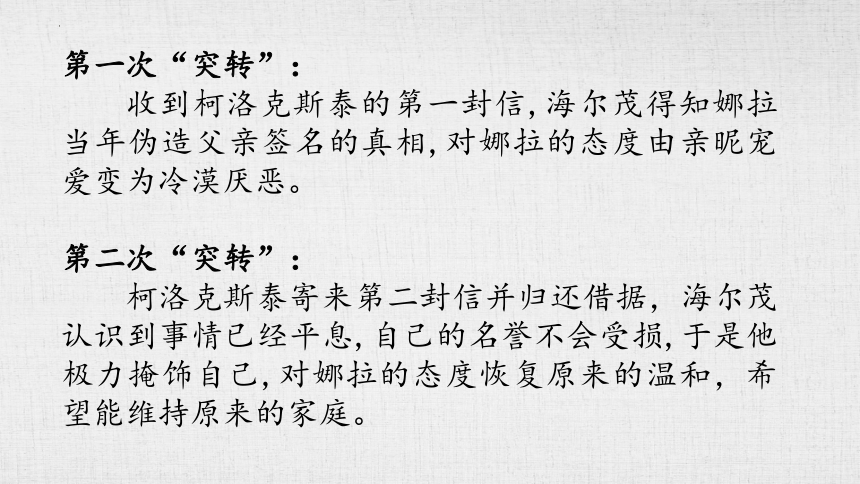 第一次“突转”：
收到柯洛克斯泰的第一封信,海尔茂得知娜拉
当年伪造父亲签名的真相,对娜拉的态度由亲昵宠
爱变为冷漠厌恶。
第二次“突转”：
柯洛克斯泰寄来第二封信并归还借据，海尔茂
认识到事情已经平息,自己的名誉不会受损,于是他
极力掩饰自己,对娜拉的态度恢复原来的温和，希
望能维持原来的家庭。